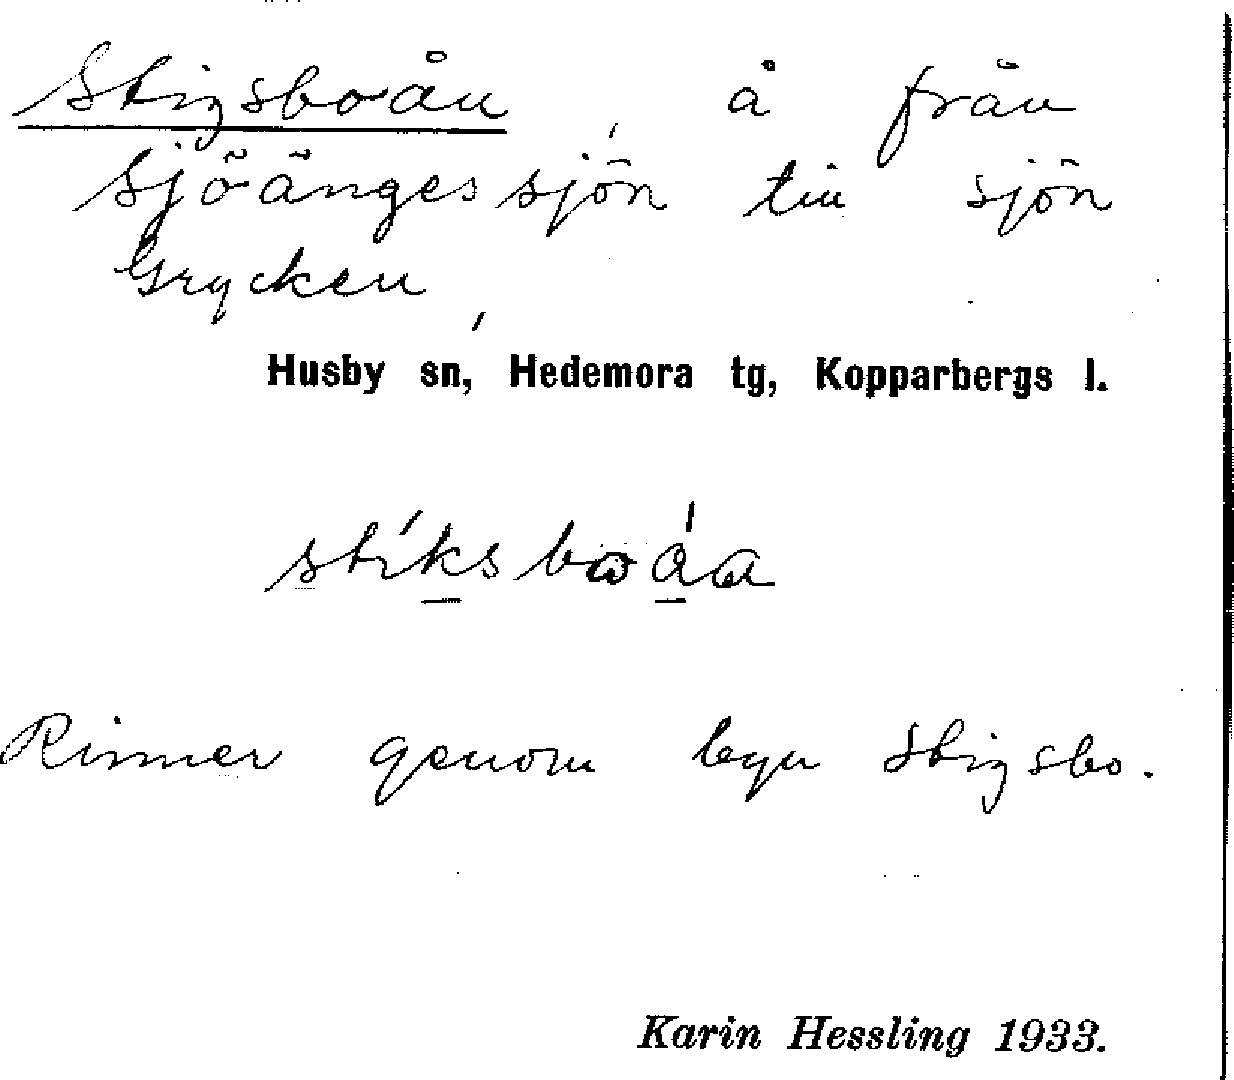 Stigsboån, å från
Sjöängessjön till sjön
Grycken,
Husby sn, Hedemora tg, Kopparbergs l.
Rinner genom byn Stigsbo.
Karin Hessling 1933.